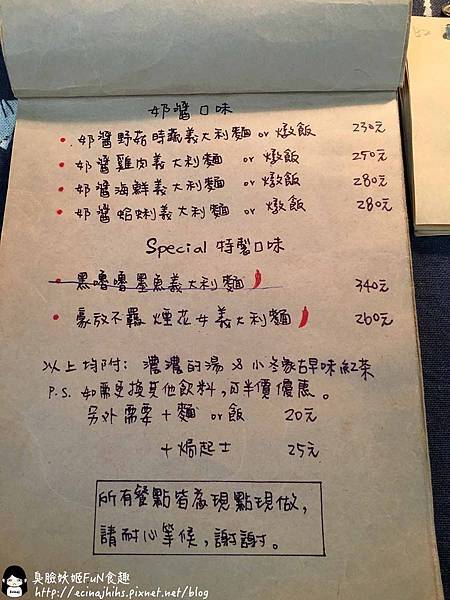 奶醬口味
• 奶醬野菇時蔬義大利麵 or 燉飯 230元
• 奶醬雞肉義大利麵 or 燉飯 250元
• 奶醬海鮮義大利麵 or 燉飯 280元
• 奶醬蛤蜊義大利麵 or 燉飯 280元
Special 特製口味
• 黑嚕嚕墨魚義大利麵 340元
• 豪放不羈煙花女義大利麵 260元
以上均附：濃濃的湯 & 小冬家古早味紅茶
P.S. 如需更換其他飲料，可半價優惠。
另外需要 + 麵 or 飯 20元
+ 焗起士 25元
所有餐點皆為現點現做，
請耐心等候，謝謝。
臭臉妖姬FuN食趣
http://ecinajhihs.pixnet.net/blog